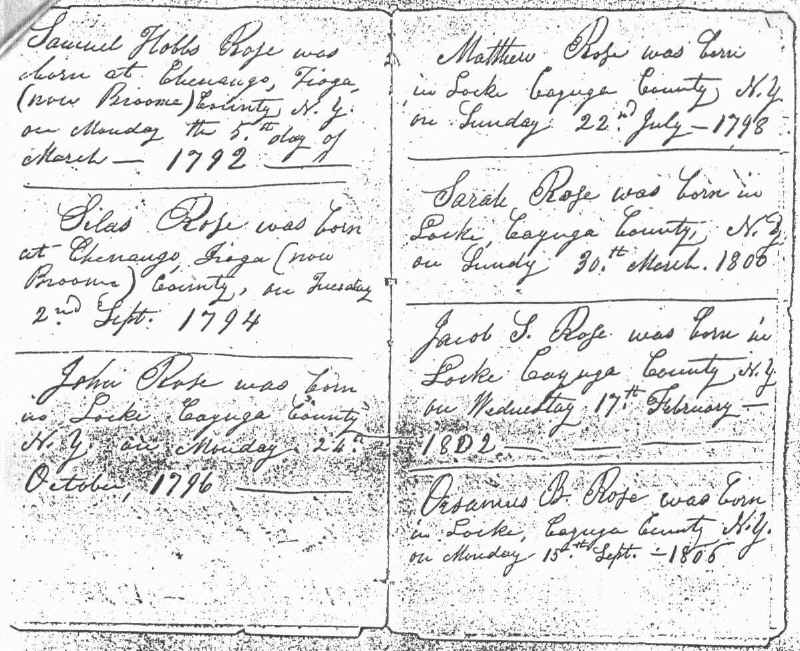 Samuel Hobbs Rose was
born at Chenango, Tioga,
(now Broome) County N. Y.
on Monday the 5.th day of
March — 1792 —
Silas Rose was born
at Chenango, Tioga (now
Broome) County, on Tuesday
2.nd Sept. 1794
John Rose was born
in Locke Cayuga County
N. Y. on Monday 24.th
October, 1796 —
Matthew Rose was born
in Locke Cayuga County, N. Y.
on Sunday 22.nd July — 1798
Sarah Rose was born in
Locke, Cayuga County, N. Y.
on Sundy 30.th March. 1800
Jacob S. Rose was born in
Locke Cayuga County, N. Y.
on Wednesday 17.th February —
1802 — — — —
Orsamus B. Rose was born
in Locke, Cayuga County N. Y.
on Monday 15.th Sept. —